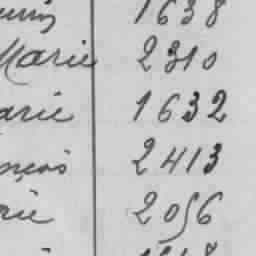 1638
Marie 2310
arie 1632
nçois 2413
rie 2056